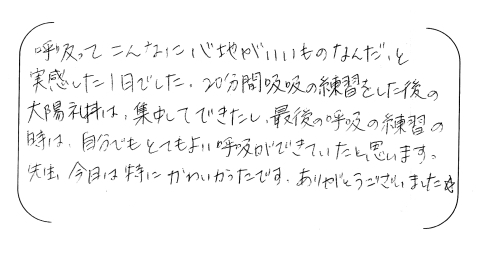 呼吸って こんなに 心地がいいものなんだ、と
実感した1日でした。20分間呼吸の練習をした後の
太陽礼拝は、集中してできたし、最後の呼吸の練習の
時は、自分でもとてもよい呼吸ができていたと思います。
先生、今日は特にかわいかったです。ありがとうございました☆